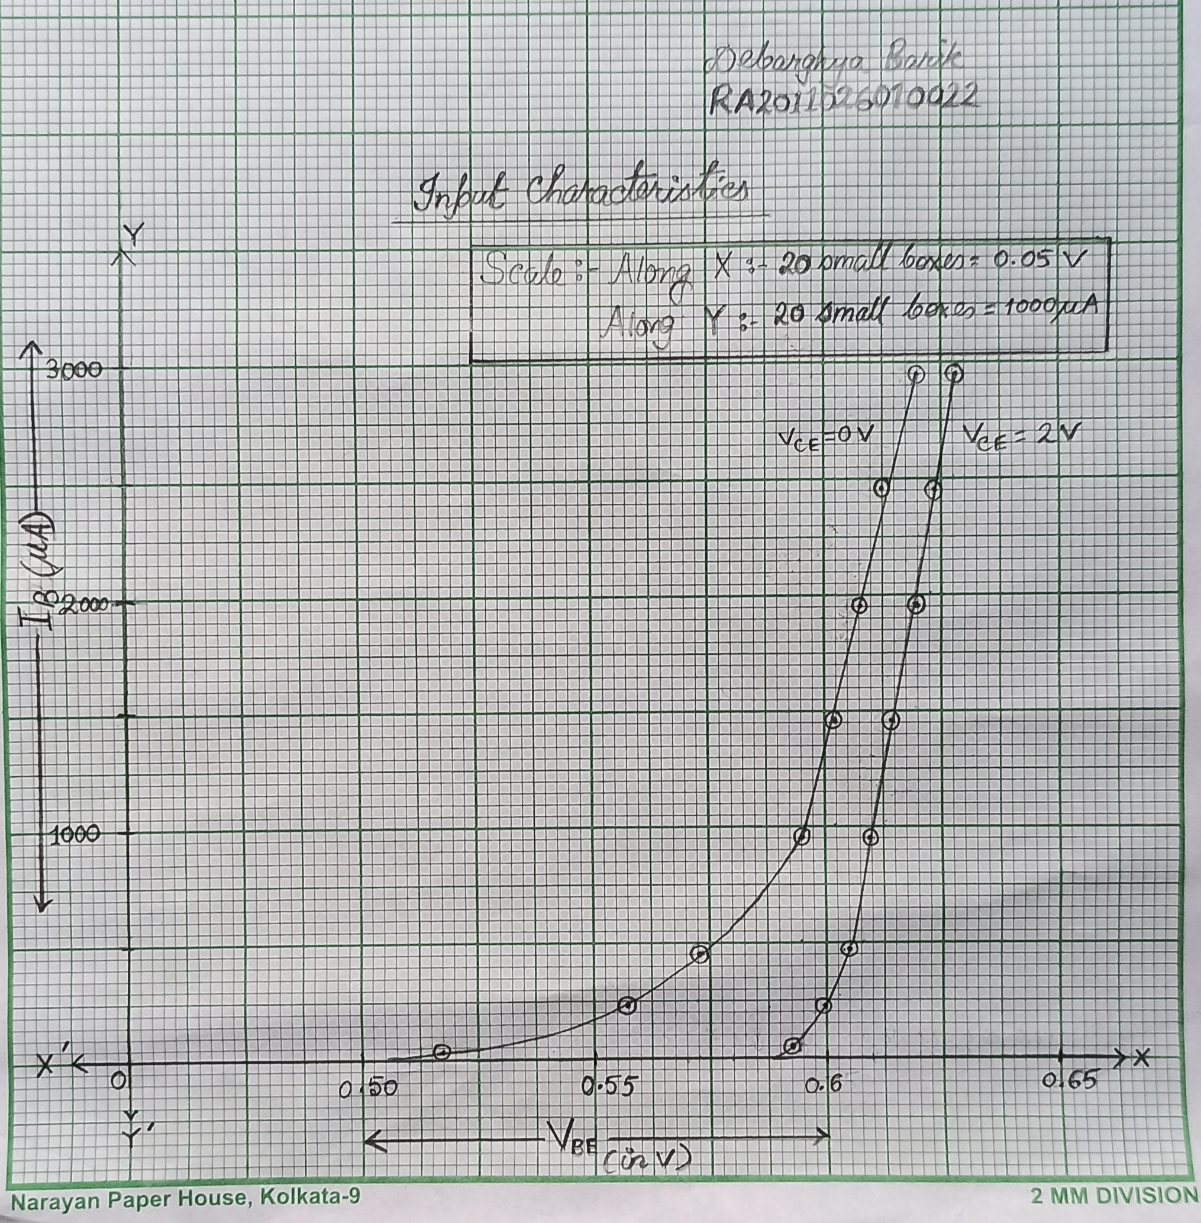 Debarghya Barik
RA2011026010022
Input Characteristics
Scale :- Along X :- 20 small boxes = 0.05 V
Along Y :- 20 small boxes = 1000 μA
Y
3000
V_CE = 0 V
V_CE = 2 V
I_B (μA)
2000
1000
X'
X
0
0.50
0.55
0.6
0.65
Y'
V_BE (in V)
Narayan Paper House, Kolkata-9
2 MM DIVISION